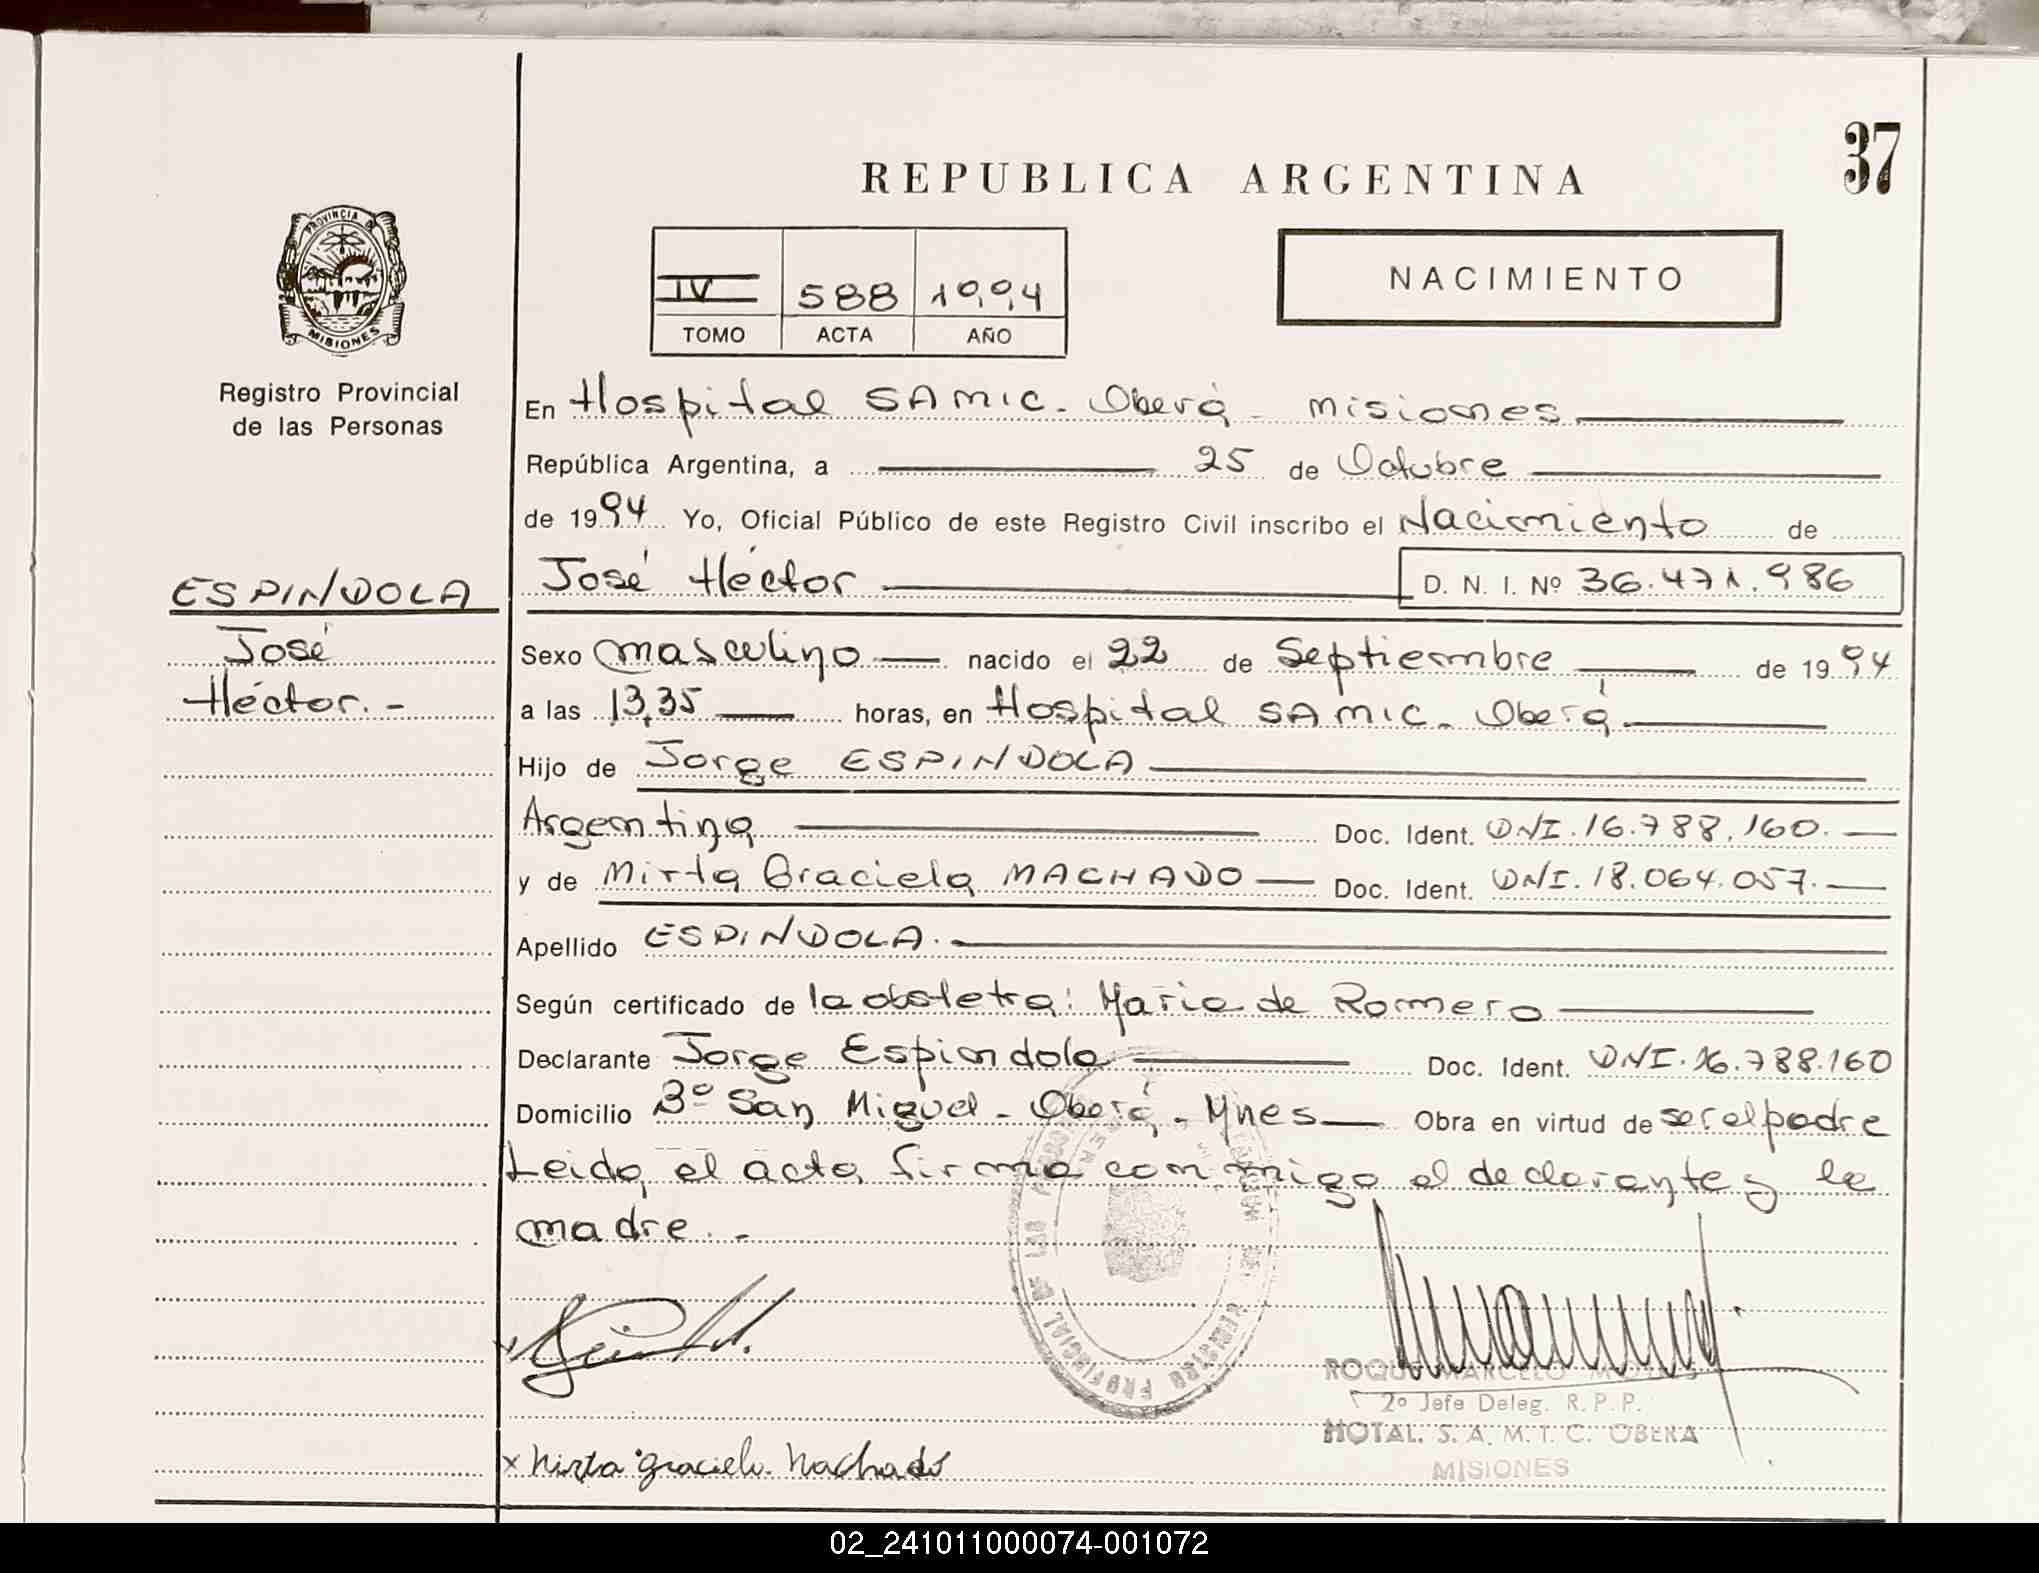 37
REPUBLICA ARGENTINA
PROVINCIA DE
MISIONES
Registro Provincial
de las Personas
IV 588 1994
TOMO ACTA AÑO
NACIMIENTO
En Hospital SAMIC - Oberá - Misiones
República Argentina, a 25 de Octubre
de 1994 Yo, Oficial Público de este Registro Civil inscribo el Nacimiento de
José Héctor D. N. I. Nº 36.471.986
ESPINDOLA
José
Héctor.-
Sexo masculino nacido el 22 de Septiembre de 1994
a las 13,35 horas, en Hospital SAMIC - Oberá
Hijo de Jorge ESPINDOLA
Argentina Doc. Ident. DNI. 16.788.160.
y de Mirta Graciela MACHADO Doc. Ident. DNI. 18.064.057.
Apellido ESPINDOLA.
Según certificado de la obstetra: Maria de Romero
Declarante Jorge Espindola Doc. Ident. DNI. 16.788.160
Domicilio Bº San Miguel - Oberá - Mnes Obra en virtud de ser el padre
Leida el acta firma conmigo el declarante y la
madre.-
REGISTRO PROVINCIAL DE LAS
ROQUE MARCELO
2º Jefe Deleg. R. P. P.
HOTAL. S. A. M. I. C. OBERA
MISIONES
x Mirta graciela Machado
02_241011000074-001072